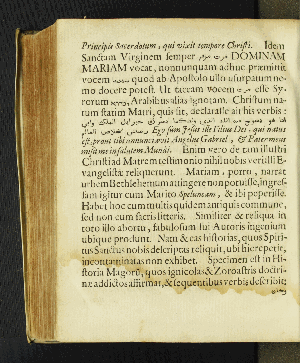 Principis Sacerdotum, qui vixit tempore Christi. Idem
Sanctam Virginem semper مرت مريم DOMINAM
MARIAM vocat, nonnunquam adhuc præmittit
quod ab Apostolo ullo usurpatum ne-
mo docere potest. Ut taceam vocem مرت esse Sy-
rorum Arabibus alias ignotam. Christum na-
tum statim Matri, quis sit, declarasse ait his verbis:
Ego sum Jesus ille Filius Dei, qui natus
est, prout tibi nunciavit Angelus Gabriel, & Pater meus
misit me in salutem Mundi. Enim vero de tam illustri
Christiad Matrem testimonio nihil nobis veridili E-
vangelistæ reliquerunt. Mariam, porro, narrat
urbem Bethlehem attingere non potuisse, ingres-
sam igitur cum Marito speluncam, & ibi peperisse.
Habet hoc cum multis quidem antiquis commune,
sed non cum sacris litteris. Similiter & reliqua in
toto illo abortu, fabulosum sui Autoris ingenium
ubique produnt. Nam & eas historias, quas Spiri-
tus Sanctus nobis descriptas reliquit, ubi hic repetit,
incontaminatas non exhibet. Specimen est in Hi-
storia Magorum, quos ignicolas & Zoroastris doctri-
næ addictos affirmat, & sequentibus verbis describit: